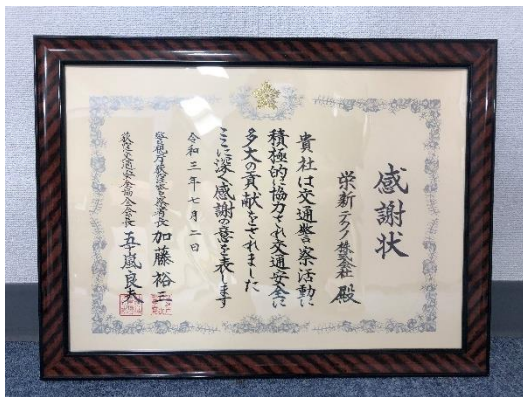 感謝状
栄新テクノ株式会社 殿
貴社は交通警察活動に
積極的に協力され交通安全に
多大の貢献をされました
ここに深く感謝の意を表します
令和三年七月二日
警視庁荻窪警察署長 加藤裕三
荻窪交通安全協会会長 五十嵐良夫